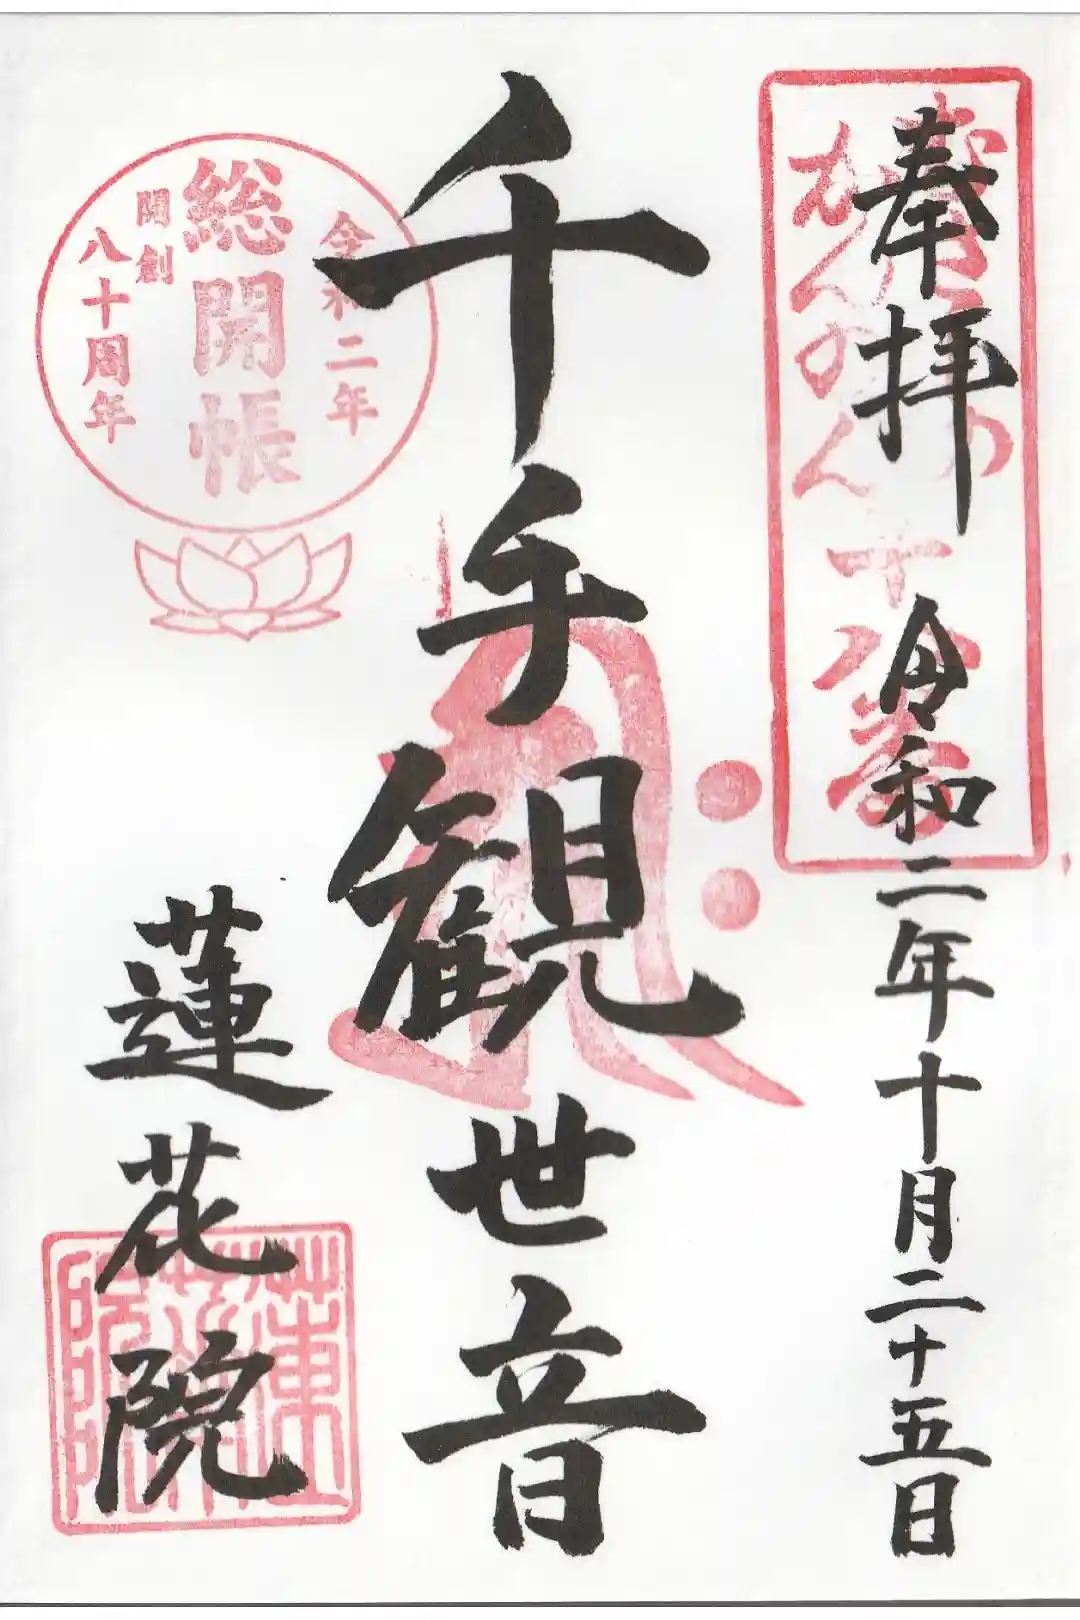 奉拝
令和二年十月二十五日
千手観世音
蓮花院
令和二年
総開帳
開創
八十周年
蓮花院